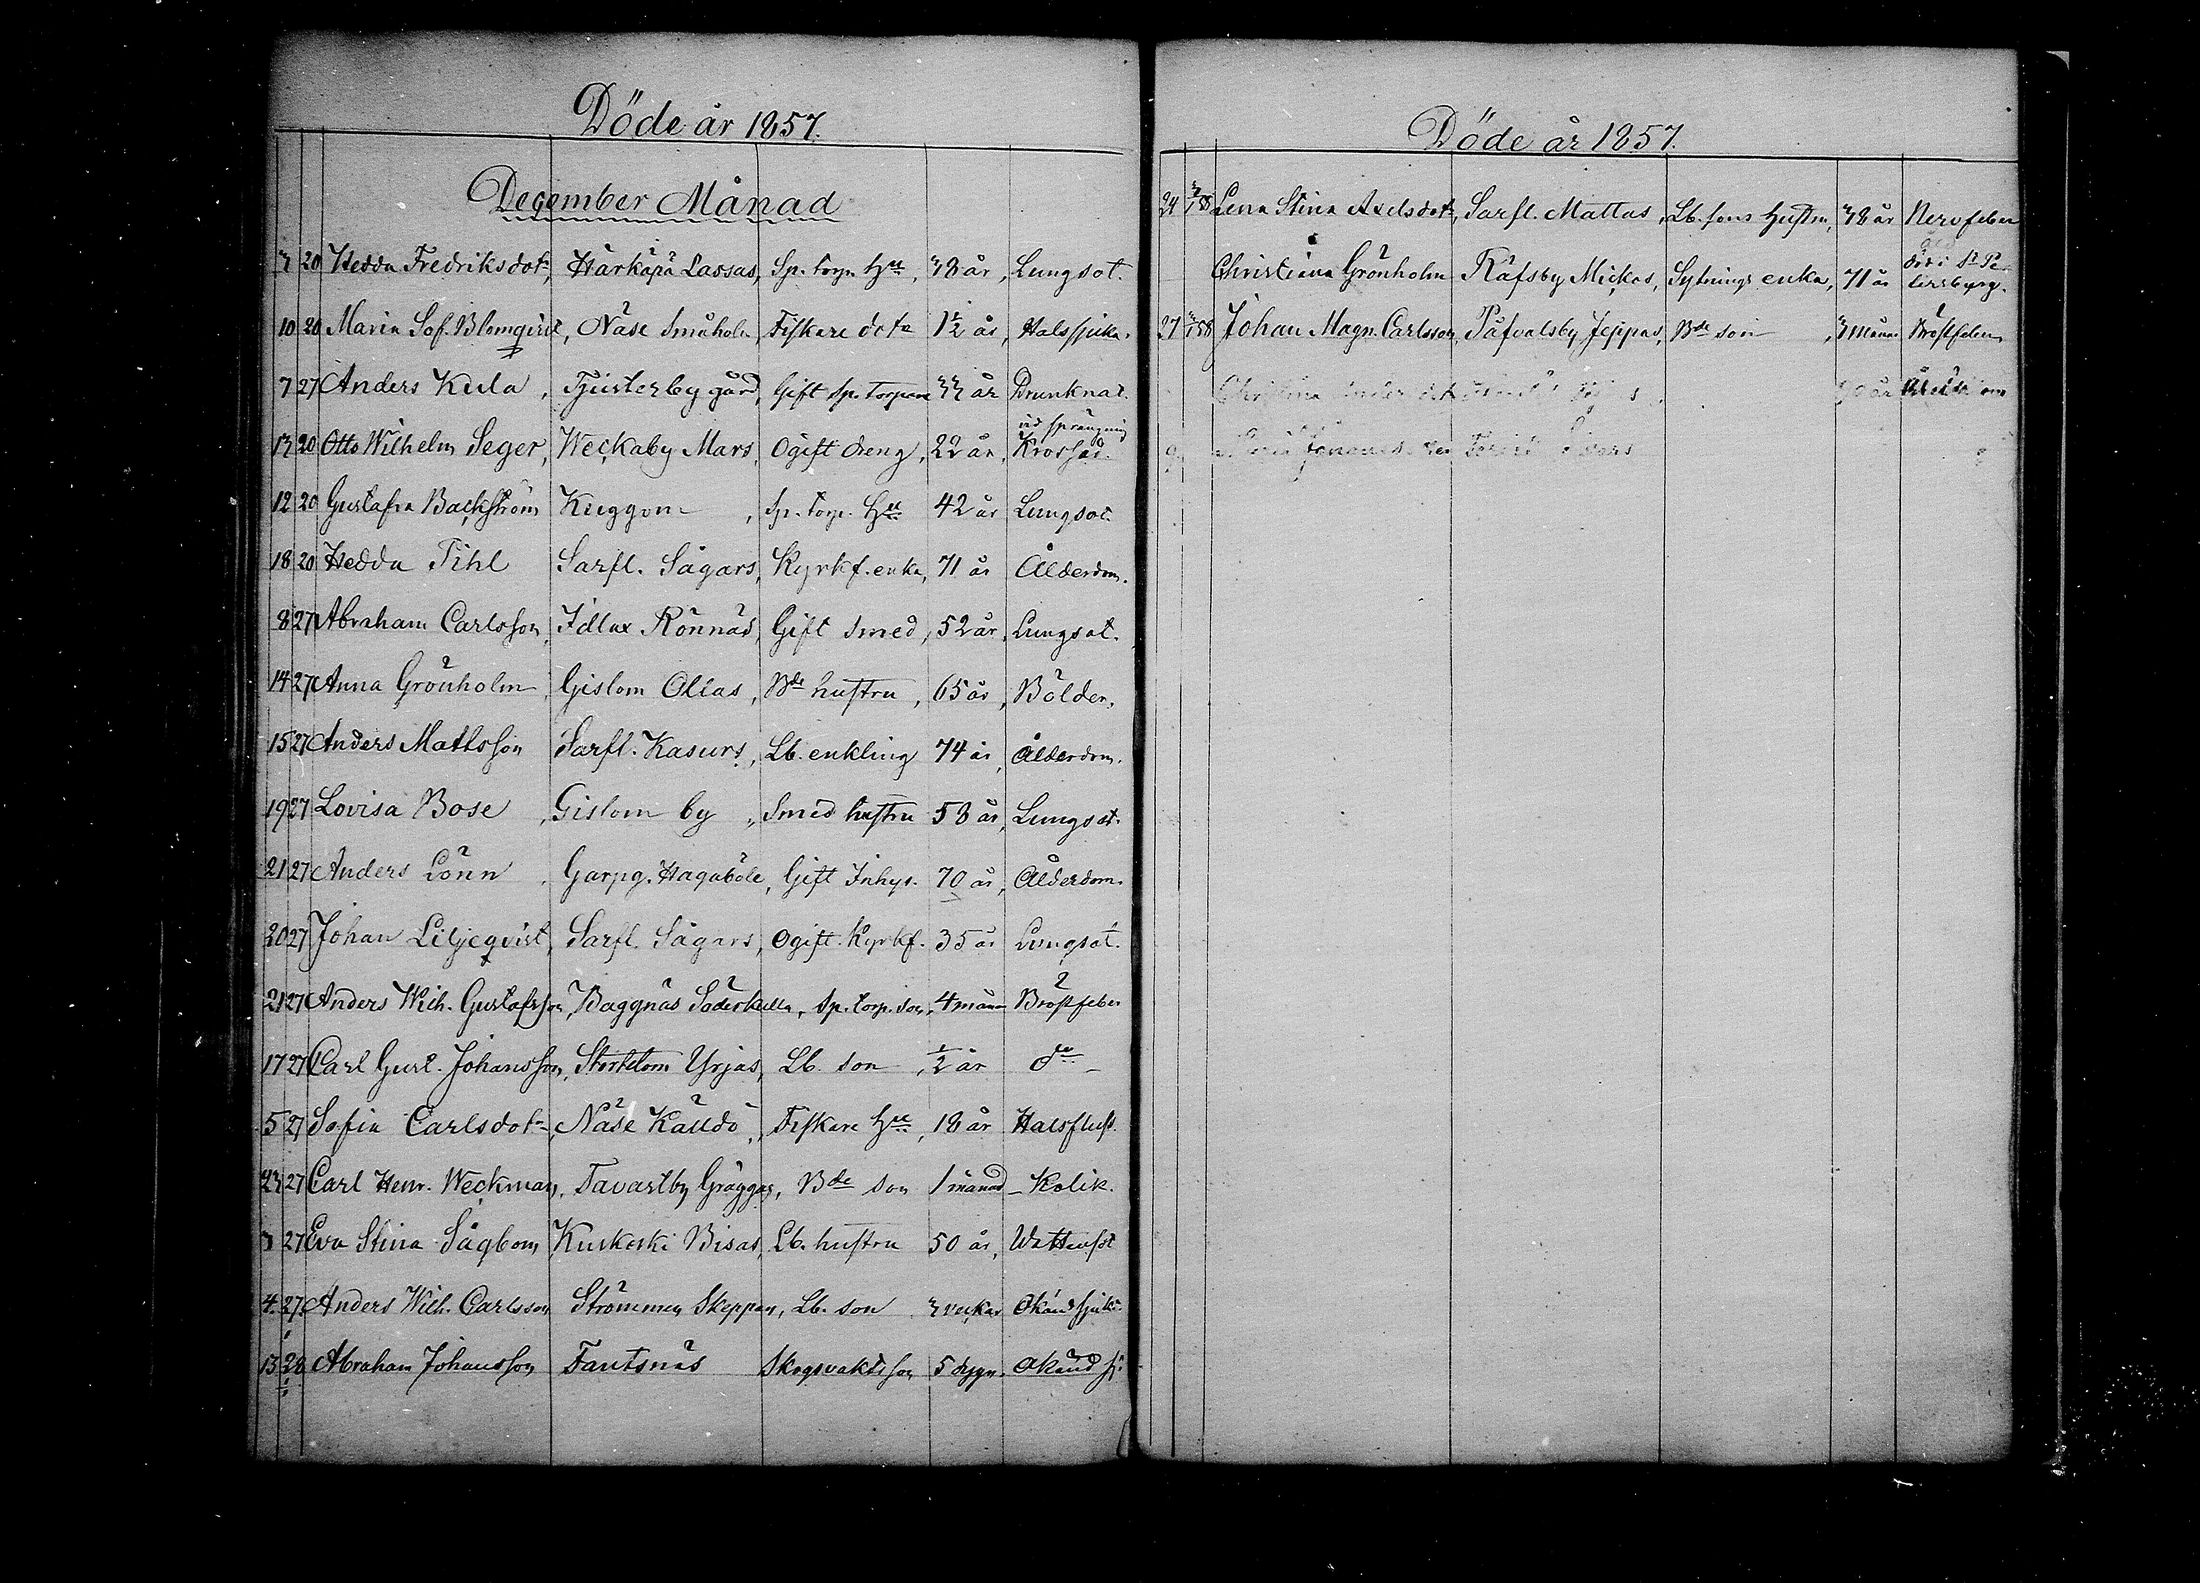 Döde år 1857.
December Månad
3 20 Hedda Fredriksdotr, Härkäpä Lassas, Sp. torp. Hu, 38 år, Lungsot.
10 20 Maria Sof. Blomqvist, Näse Småholm Fiskare dotr 1½ år, Halssjuka.
7 27 Anders Kula, Tjusterby gård, Gift Sp. torpare 33 år Drunknat.
13 20 Otto Wilhelm Seger, Weckaby Mars, Ogift dreng, 22 år, vid sprängning Krossad.
12 20 Gustafva Backström Kuggom, Sp. torp. Hu 42 år Lungsot.
18 20 Hedda Pihl Sarfl. Sågars, Kyrkf. enka, 71 år Ålderdom.
8 27 Abraham Carlsson, Idlax Rönnäs, Gift Smed, 52 år, Lungsot.
14 27 Anna Grönholm, Gislom Ollas, Bde hustru, 65 år, Bölder.
15 27 Anders Mattsson Sarfl. Kasurs, Lb. enkling 74 år, Ålderdom.
19 27 Lovisa Bose, Gislom by, Smed hustru 58 år, Lungsot.
21 27 Anders Lönn, Garpg. Hagaböle, Gift Inhys. 70 år, Ålderdom.
20 27 Johan Liljeqvist, Sarfl. Sågars, Ogift Kyrkf. 35 år Lungsot.
21 27 Anders Wilh. Gustafsson, Baggnäs Söderkulla, Sp. torp. son, 4 mån Bröstfeber
17 27 Carl Gust. Johansson, Stortlom Yrjas, Lb. son, ½ år do
5 27 Sofia Carlsdotr, Näse Källdö, Fiskare Hu, 18 år Halsfluss.
23 27 Carl Henr. Weckman, Tavastby Gräggas, Bde son 1 månad Kolik.
3 27 Eva Stina Sågbom, Kuskoski Bisas, Lb. hustru 50 år, Wattensot
4. 27. Anders Wilh. Carlsson Strömmen Skeppars, Lb. son 3 veckor Okänd sjukd.
13 28 Abraham Johansson Fantsnäs Skogsvakts son 5 dygn. Okänd sj:
Döde år 1857.
24 3/1 58 Lena Stina Axelsdotr, Sarfl. Mattas, Lb. sons hustru, 38 år Nervfeber
Christina Grönholm Räfsby Mickas, Sytnings enka, 71 år död i St Petersburg.
27 3/1 58 Johan Magn. Carlsson, Påfvalsby Jeppas, Bde son, 3 månar Bröstfeber
Christina